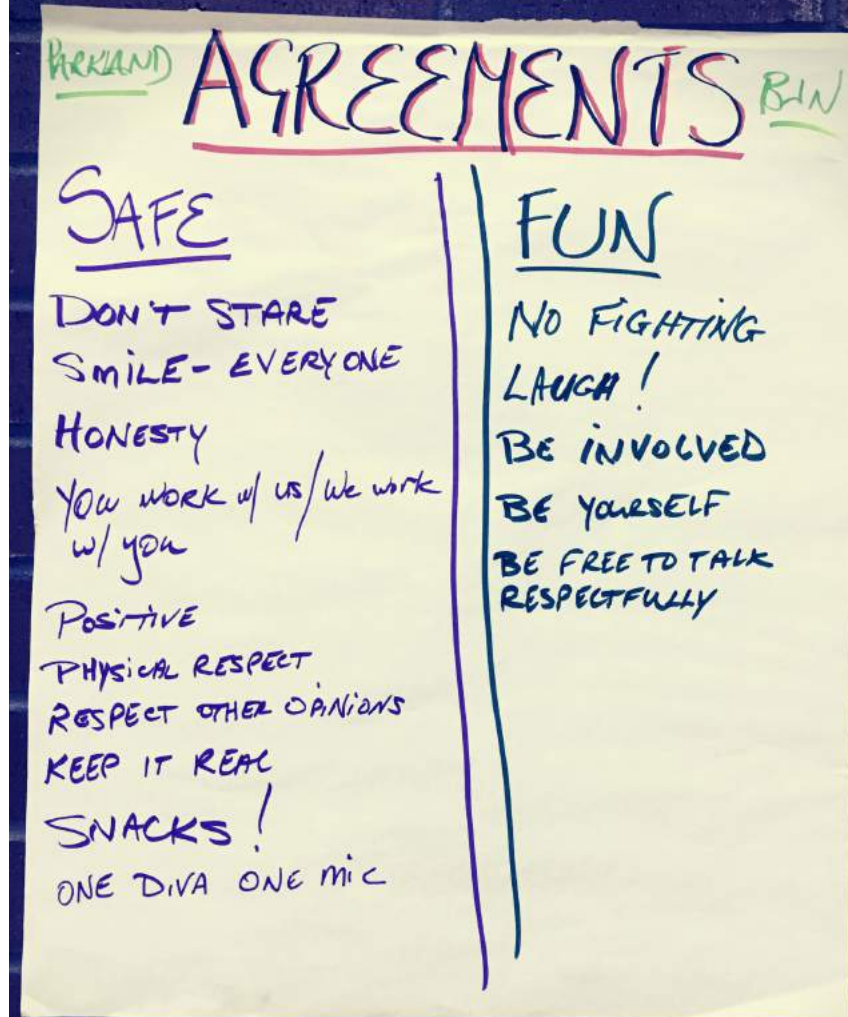 PARKLAND
AGREEMENTS
BLN
SAFE
DON'T STARE
SMILE - EVERYONE
HONESTY
YOU WORK w/ us/We work
w/ you
POSITIVE
PHYSICAL RESPECT
RESPECT OTHER OPINIONS
KEEP IT REAL
SNACKS!
ONE DIVA ONE MIC
FUN
NO FIGHTING
LAUGH!
BE INVOLVED
BE YOURSELF
BE FREE TO TALK
RESPECTFULLY